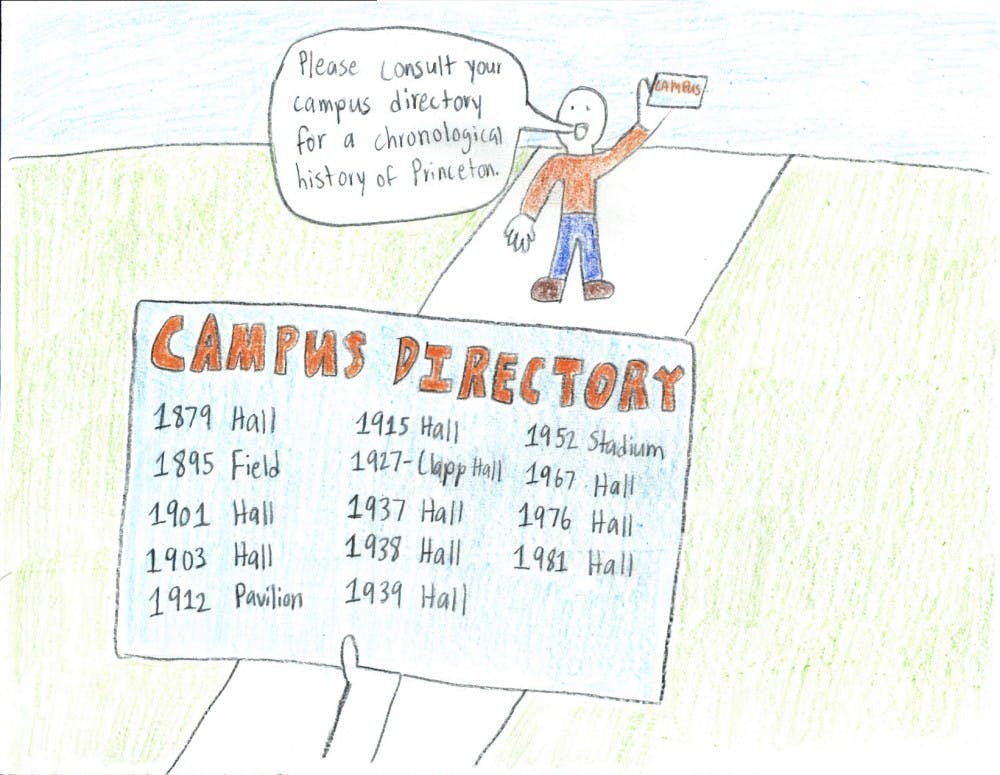 Please consult your
campus directory
for a chronological
history of Princeton.
CAMPUS
CAMPUS DIRECTORY
1879 Hall
1895 Field
1901 Hall
1903 Hall
1912 Pavilion
1915 Hall
1927-Clapp Hall
1937 Hall
1938 Hall
1939 Hall
1952 Stadium
1967 Hall
1976 Hall
1981 Hall